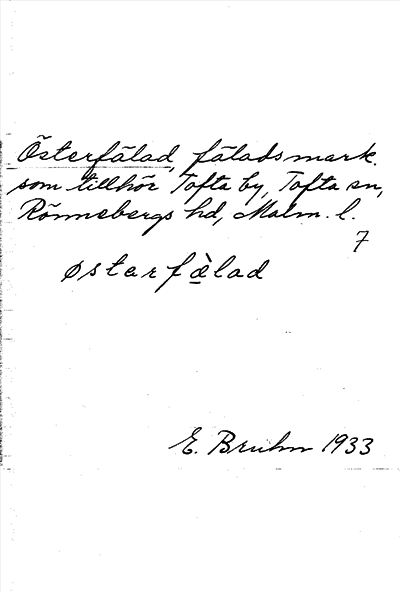 Österfälad, fäladsmark.
som tillhör Tofta by, Tofta sn,
Rönnebergs hd, Malm. l.
7
østarfæ̀lad
E. Bruhn 1933